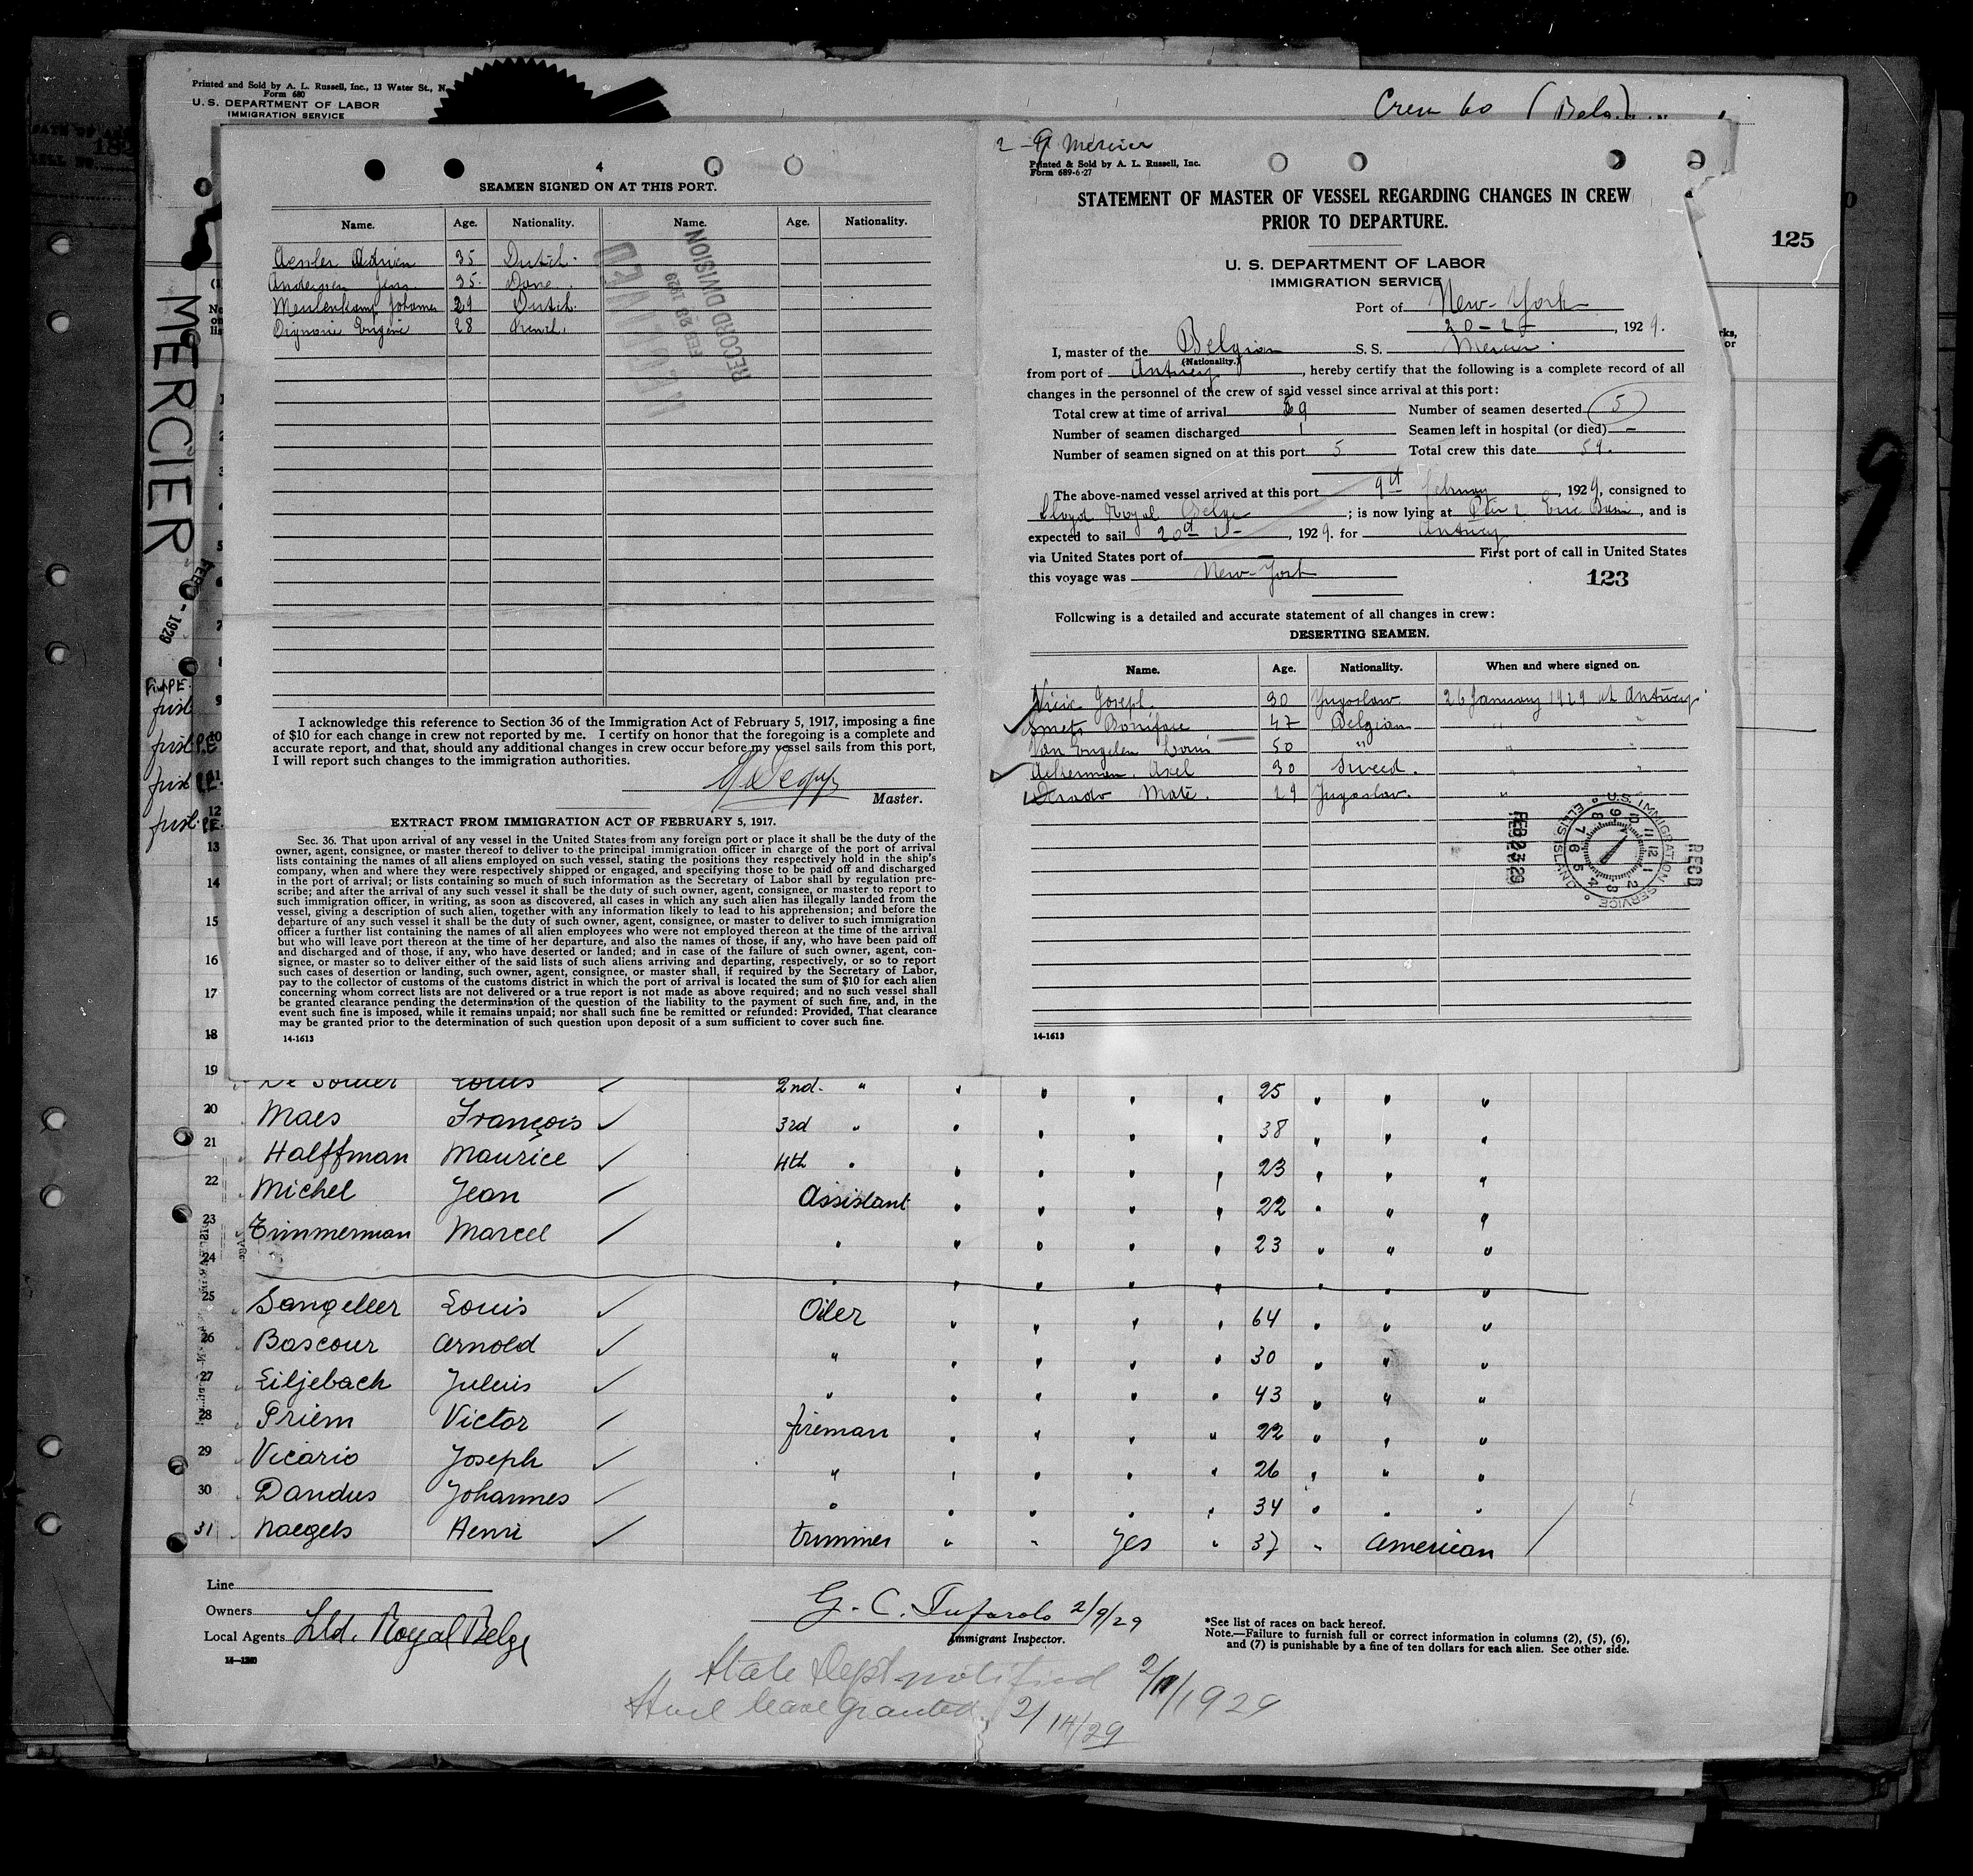 Printed and Sold by A. L. Russell, Inc., 13 Water St., N.
Form 680
U. S. DEPARTMENT OF LABOR
IMMIGRATION SERVICE
Crew 60 (Belg.)
125
MERCIER
FEB - 1929
4
SEAMEN SIGNED ON AT THIS PORT.
Name. Age. Nationality. Name. Age. Nationality.
Adrien 35 Dutch
Andersen Jens 35 Dane
Meulenkamp Johannes 29 Dutch
Eugène 28 French
RECORD DIVISION
FEB 23 1929
I acknowledge this reference to Section 36 of the Immigration Act of February 5, 1917, imposing a fine
of $10 for each change in crew not reported by me. I certify on honor that the foregoing is a complete and
accurate report, and that, should any additional changes in crew occur before my vessel sails from this port,
I will report such changes to the immigration authorities.
Master.
EXTRACT FROM IMMIGRATION ACT OF FEBRUARY 5, 1917.
Sec. 36. That upon arrival of any vessel in the United States from any foreign port or place it shall be the duty of the
owner, agent, consignee, or master thereof to deliver to the principal immigration officer in charge of the port of arrival
lists containing the names of all aliens employed on such vessel, stating the positions they respectively hold in the ship's
company, when and where they were respectively shipped or engaged, and specifying those to be paid off and discharged
in the port of arrival; or lists containing so much of such information as the Secretary of Labor shall by regulation pre-
scribe; and after the arrival of any such vessel it shall be the duty of such owner, agent, consignee, or master to report to
such immigration officer, in writing, as soon as discovered, all cases in which any such alien has illegally landed from the
vessel, giving a description of such alien, together with any information likely to lead to his apprehension; and before the
departure of any such vessel it shall be the duty of such owner, agent, consignee, or master to deliver to such immigration
officer a further list containing the names of all alien employees who were not employed thereon at the time of the arrival
but who will leave port thereon at the time of her departure, and also the names of those, if any, who have been paid off
and discharged and of those, if any, who have deserted or landed; and in case of the failure of such owner, agent, con-
signee, or master so to deliver either of the said lists of such aliens arriving and departing, respectively, or so to report
such cases of desertion or landing, such owner, agent, consignee, or master shall, if required by the Secretary of Labor,
pay to the collector of customs of the customs district in which the port of arrival is located the sum of $10 for each alien
concerning whom correct lists are not delivered or a true report is not made as above required; and no such vessel shall
be granted clearance pending the determination of the question of the liability to the payment of such fine, and, in the
event such fine is imposed, while it remains unpaid; nor shall such fine be remitted or refunded: Provided, That clearance
may be granted prior to the determination of such question upon deposit of a sum sufficient to cover such fine.
14-1613
2 - 9 Mercier
Printed & Sold by A. L. Russell, Inc.
Form 689-6-27
STATEMENT OF MASTER OF VESSEL REGARDING CHANGES IN CREW
PRIOR TO DEPARTURE.
U. S. DEPARTMENT OF LABOR
IMMIGRATION SERVICE
Port of New-York
20-2-, 1929.
I, master of the Belgian S. S. Mercier
(Nationality.)
from port of Antwerp, hereby certify that the following is a complete record of all
changes in the personnel of the crew of said vessel since arrival at this port:
Total crew at time of arrival 59 Number of seamen deserted 5
Number of seamen discharged 1 Seamen left in hospital (or died) -
Number of seamen signed on at this port 5 Total crew this date 59.
The above-named vessel arrived at this port 9th February, 1929, consigned to
Lloyd Royal Belge; is now lying at Pier 2 Erie Basin, and is
expected to sail 20th 2-, 1929. for Antwerp
via United States port of - First port of call in United States
this voyage was New-York
123
Following is a detailed and accurate statement of all changes in crew:
DESERTING SEAMEN.
Name. Age. Nationality. When and where signed on.
Joseph. 30 Yugoslav. 26 January 1929 at Antwerp
Smets Boniface 47 Belgian " "
Van Engelen Louis 50 " " "
Ackerman Axel 30 Sweed. " "
Mate. 29 Yugoslav. "
FEB 23 1929
U. S. IMMIGRATION SERVICE ELLIS ISLAND
RECD
19 Louis 2nd. " 25
20 Maes François 3rd " 38
21 Halffman Maurice 4th " 23
22 Michel Jean Assistant 22
23 Timmerman Marcel " 23
24
25 Sangeller Louis Oiler 64
26 Bascour Arnold " 30
27 Liljebach Julius " 43
28 Priem Victor fireman 22
29 Vicario Joseph " 26
30 Dandus Johannes " 34
31 Naegels Henri trimmer " " yes " 37 " American
Line
Owners
Local Agents Lld. Royal Belge
14-1240
G. C. Tufarolo 2/9/29
Immigrant Inspector.
*See list of races on back hereof.
Note.—Failure to furnish full or correct information in columns (2), (5), (6),
and (7) is punishable by a fine of ten dollars for each alien. See other side.
State Dept notified 2/11/1929
leave granted. 2/14/29